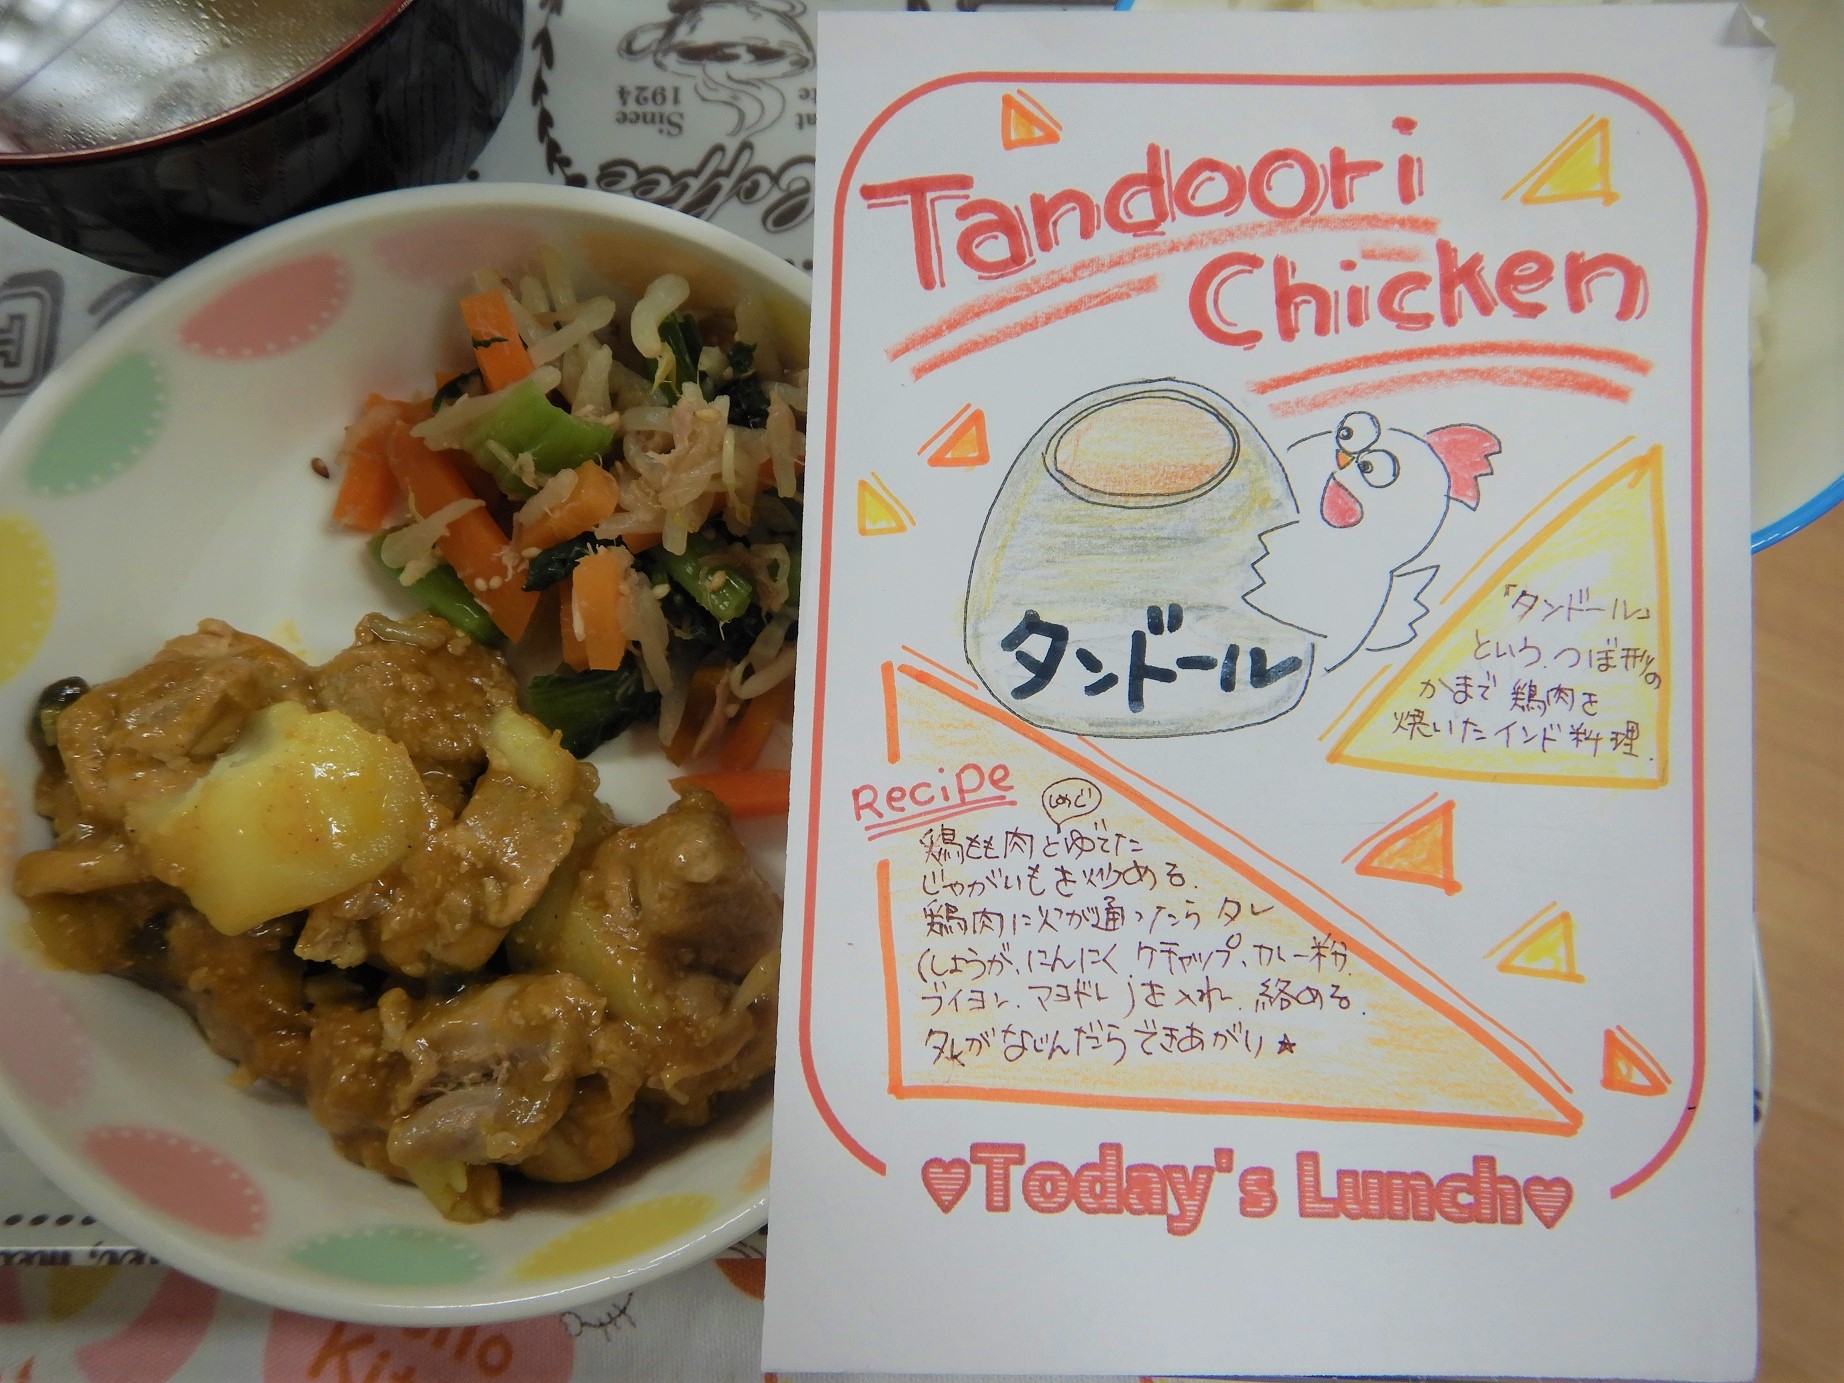 Since
1924
Coffee
Tandoori
Chicken
タンドール
「タンドール」
という、つぼ形の
かまで鶏肉を
焼いたインド料理.
Recipe
しめじ
鶏もも肉とゆでた
じゃがいもを炒める.
鶏肉に火が通ったらタレ
(しょうが、にんにく ケチャップ、カレー粉、
ブイヨン、マヨドレ)を入れ、絡める.
タレがなじんだらできあがり☆
♥Today's Lunch♥